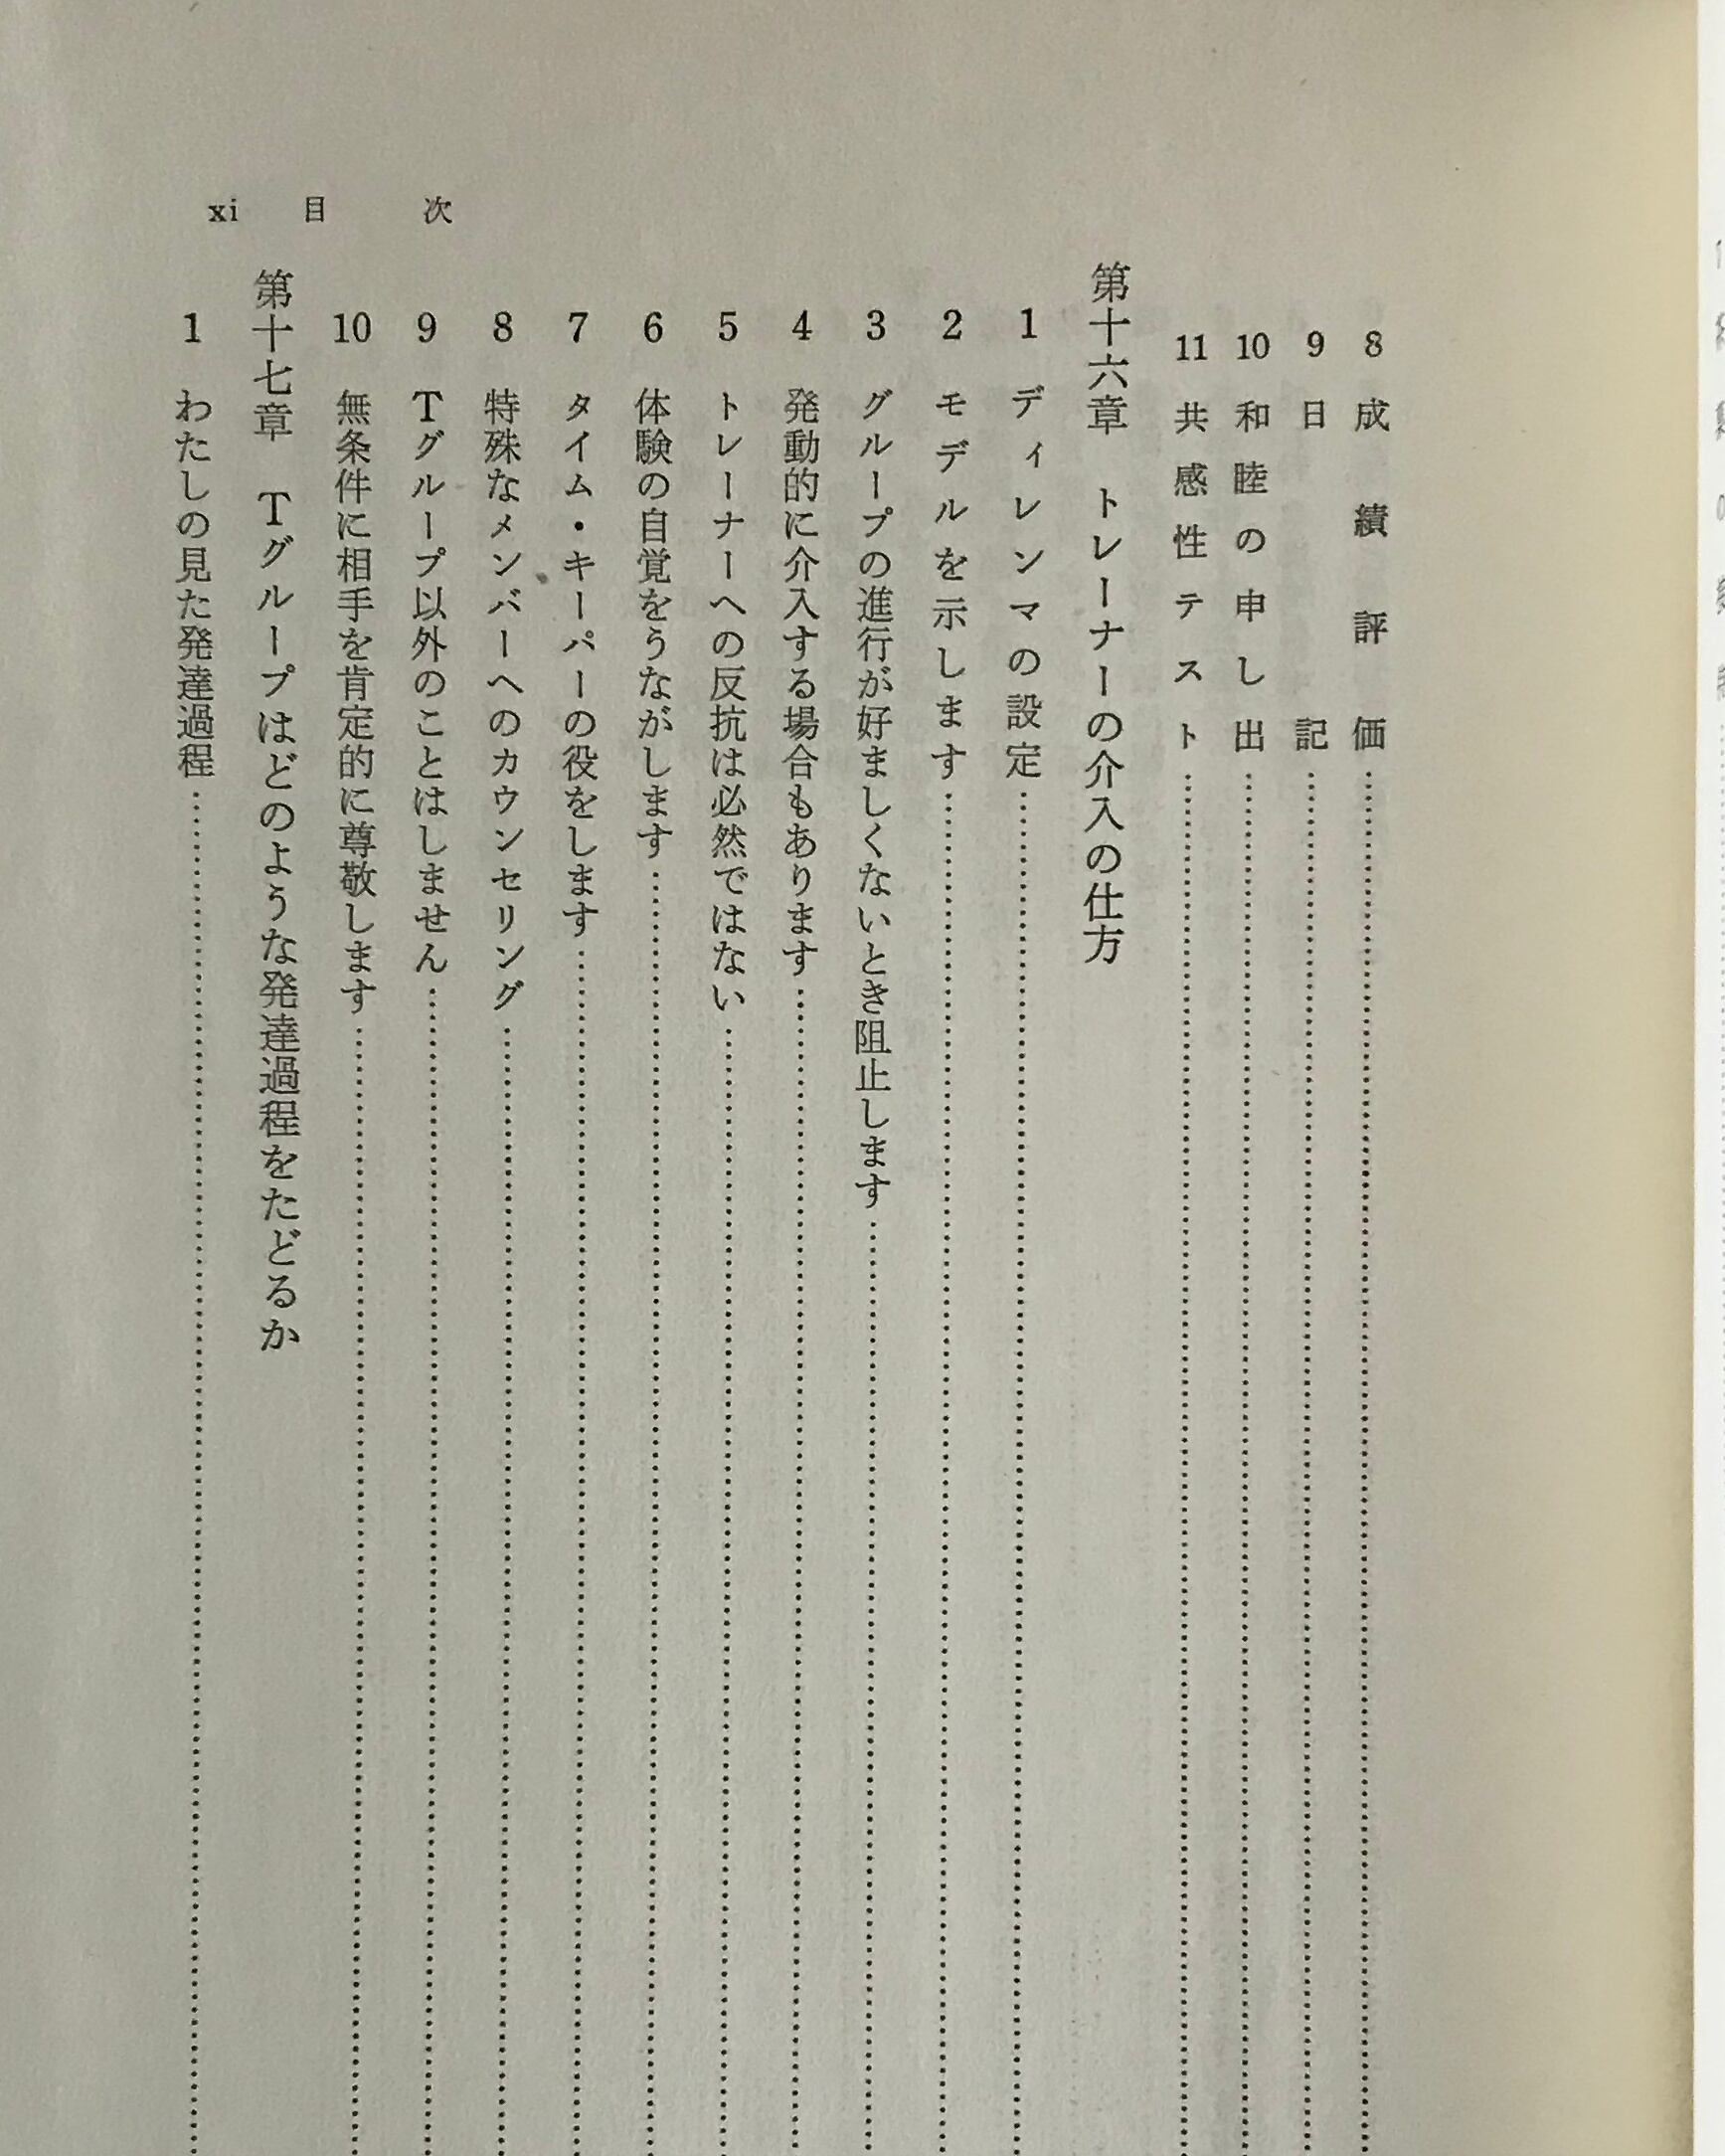 xi 目次
8 成績評価
9 日記
10 和睦の申し出
11 共感性テスト
第十六章 トレーナーの介入の仕方
1 ディレンマの設定
2 モデルを示します
3 グループの進行が好ましくないとき阻止します
4 発動的に介入する場合もあります
5 トレーナーへの反抗は必然ではない
6 体験の自覚をうながします
7 タイム・キーパーの役をします
8 特殊なメンバーへのカウンセリング
9 Tグループ以外のことはしません
10 無条件に相手を肯定的に尊敬します
第十七章 Tグループはどのような発達過程をたどるか
1 わたしの見た発達過程